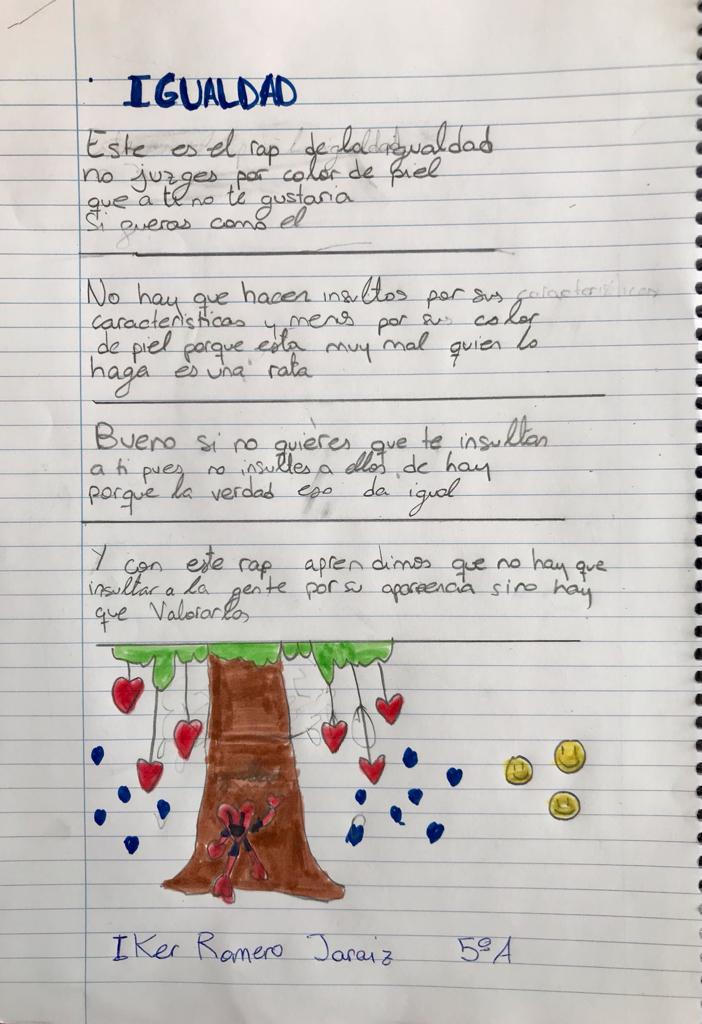 IGUALDAD
Este es el rap de la igualdad
no juzges por color de piel
que a ti no te gustaria
Si fueras como el
No hay que hacer insultos por sus
caracteristicas y menos por su color
de piel porque esta muy mal quien lo
haga es una rata
Bueno si no quieres que te insulten
a ti pues no insultes a ellos de hay
porque la verdad eso da igual
Y con este rap aprendimos que no hay que
insultar a la gente por su apareencia sino hay
que Valorarlos
IKer Romero Jaraiz 5ºA